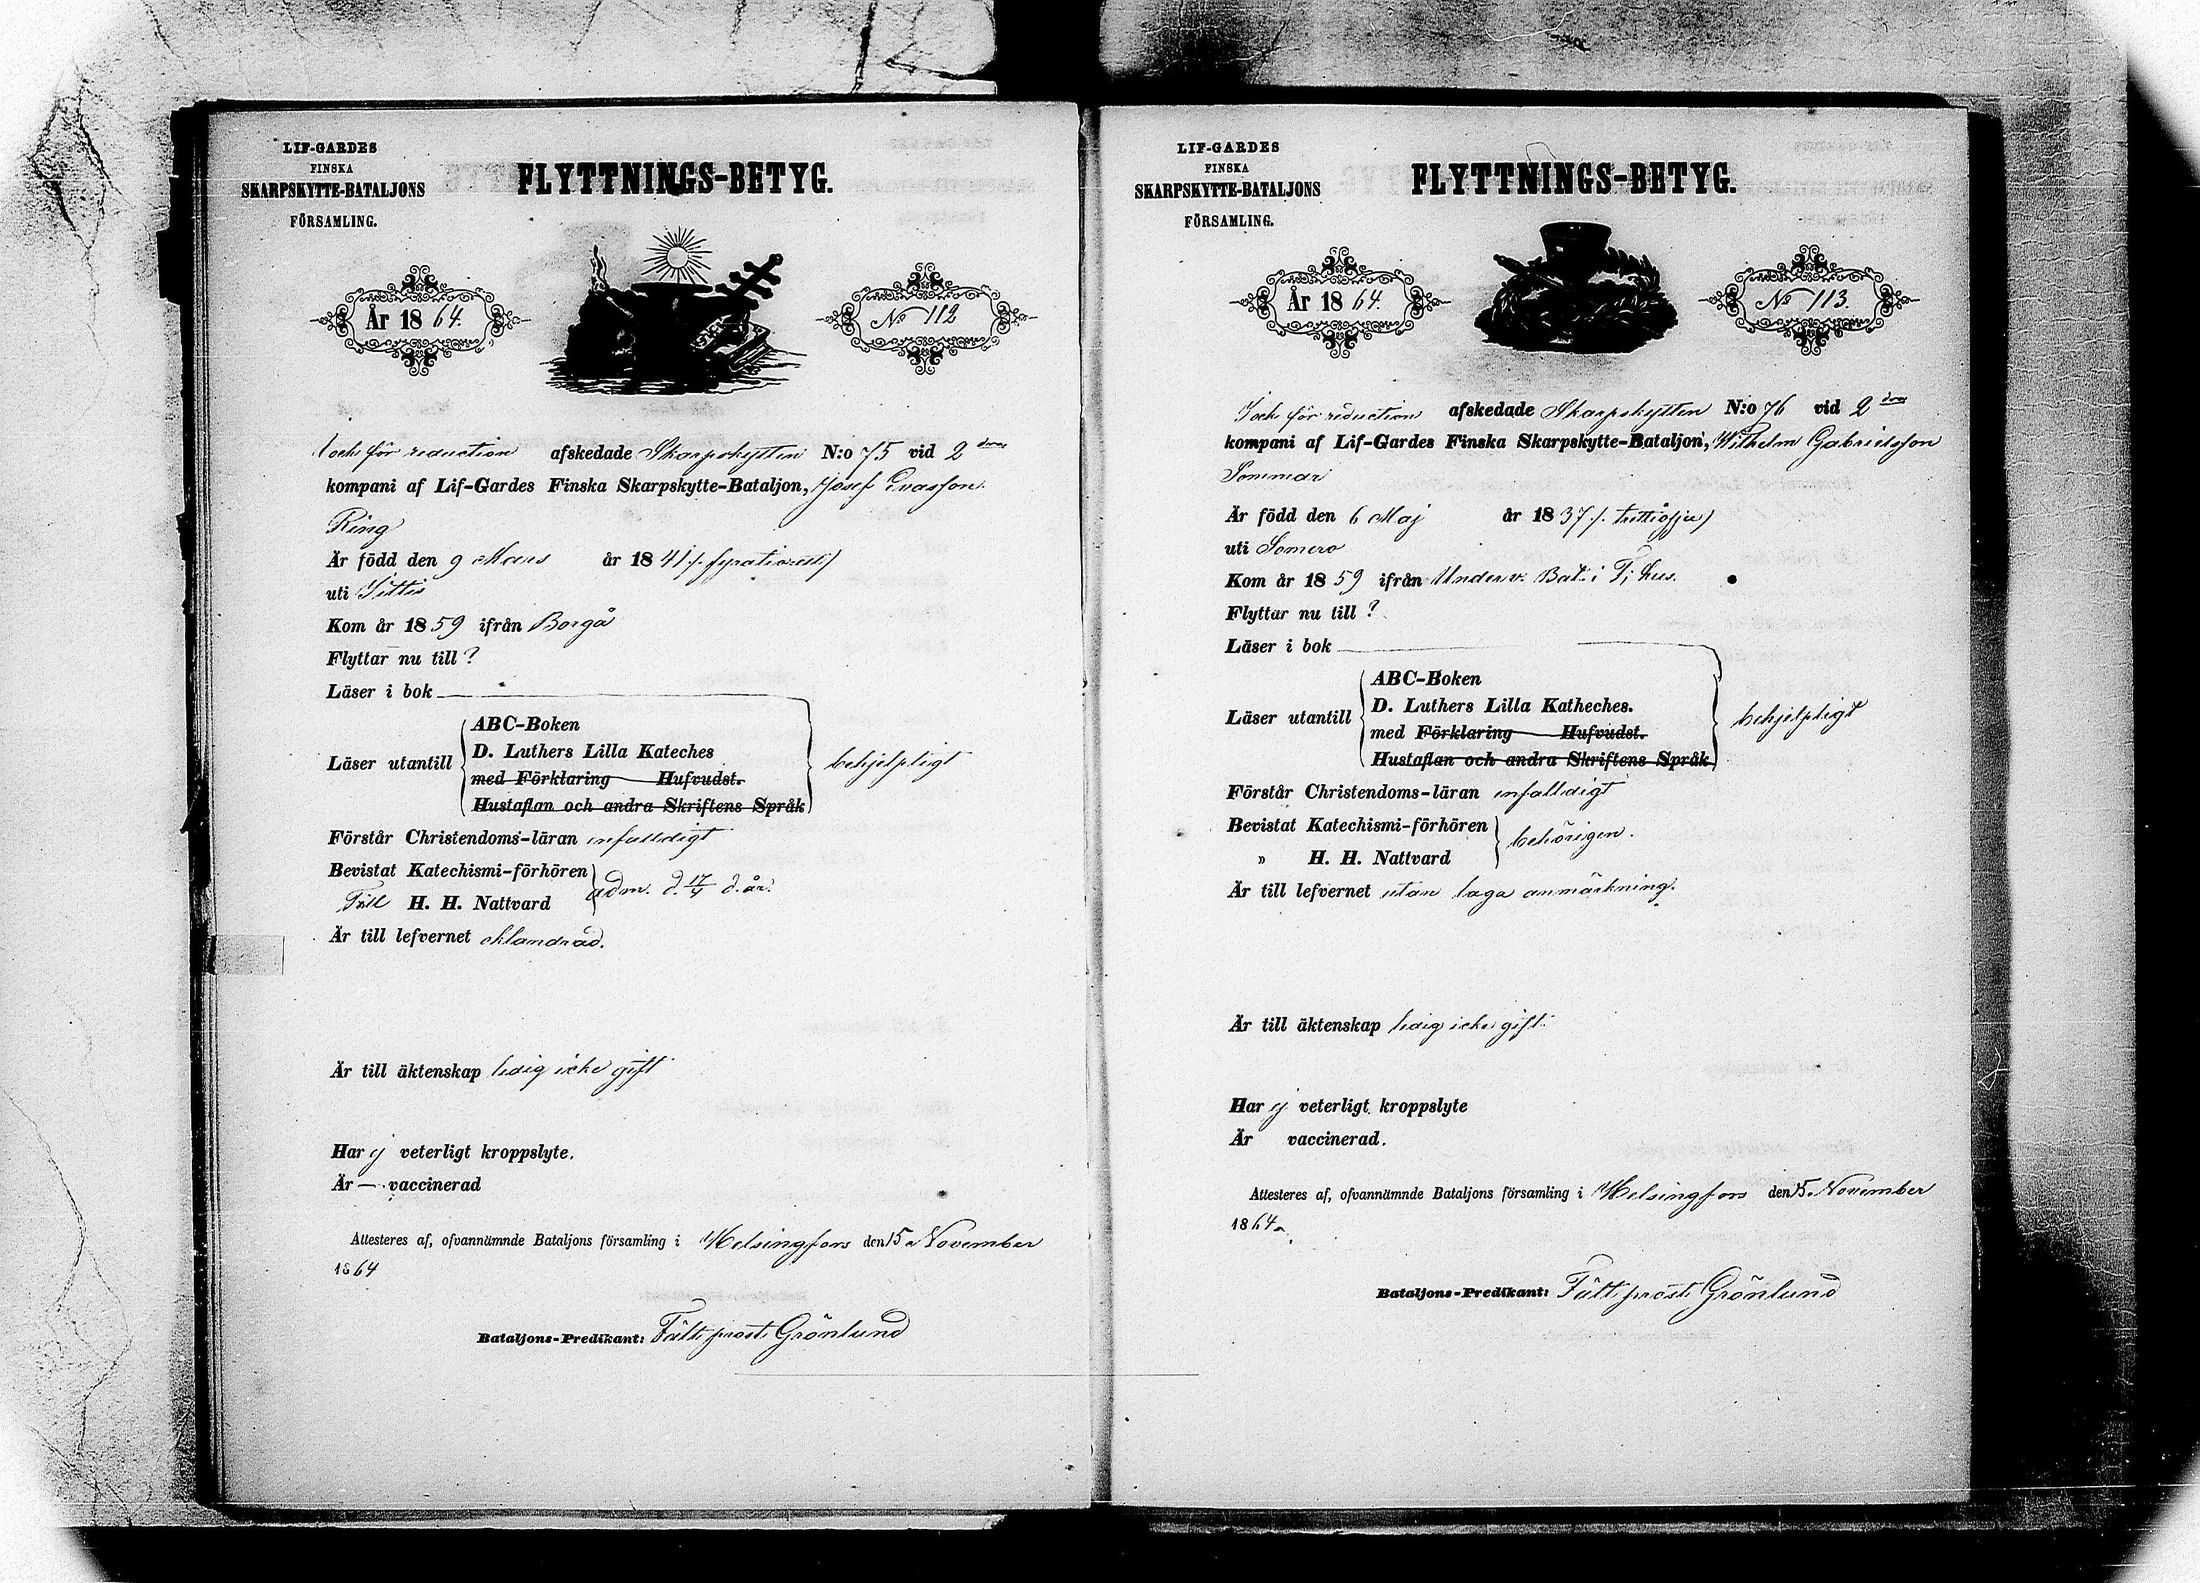 LIF-GARDES
FINSKA
SKARPSKYTTE-BATALJONS
FÖRSAMLING.
FLYTTNINGS-BETYG.
År 1864.
No 112
och för reduction afskedade Skarpskytten N:o 75 vid 2 dra
kompani af Lif-Gardes Finska Skarpskytte-Bataljon, Josef Evasson
Ring
Är född den 9 Mars år 1841 /. fyratioett /
uti Sittis
Kom år 1859 ifrån Borgå
Flyttar nu till ?
Läser i bok
ABC-Boken
D. Luthers Lilla Kateches
Läser utantill
med Förklaring Hufvudst.
Hustaflan och andra Skriftens Språk
behjelpligt
Förstår Christendoms-läran enfalldigt
Bevistat Katechismi-förhören
Till H. H. Nattvard
adm. d. 17/4 d. år.
Är till lefvernet oklandrad.
Är till äktenskap ledig icke gift
Har ej veterligt kroppslyte.
Är — vaccinerad
Attesteres af, ofvannämnde Bataljons församling i Helsingfors den 15 November
1864
Bataljons-Predikant: Fält prost Grönlund
LIF-GARDES
FINSKA
SKARPSKYTTE-BATALJONS
FÖRSAMLING.
FLYTTNINGS-BETYG.
År 1864.
No 113.
och för reduction afskedade Skarpskytten N:o 76 vid 2 dra
kompani af Lif-Gardes Finska Skarpskytte-Bataljon, Wilhelm Gabrielsson
Sommar
Är född den 6 Maj år 1837 /. trettiosju /
uti Somero
Kom år 1859 ifrån Underv. Bat. i T; hus.
Flyttar nu till ?
Läser i bok
ABC-Boken
D. Luthers Lilla Katheches.
Läser utantill
med Förklaring Hufvudst.
Hustaflan och andra Skriftens Språk
behjelpligt
Förstår Christendoms-läran enfalldigt
Bevistat Katechismi-förhören
" H. H. Nattvard
behörigen.
Är till lefvernet utan laga anmärkning.
Är till äktenskap ledig icke gift.
Har ej veterligt kroppslyte
Är vaccinerad.
Attesteres af, ofvannämnde Bataljons församling i Helsingfors den 15 November
1864
Bataljons-Predikant: Fält prost Grönlund